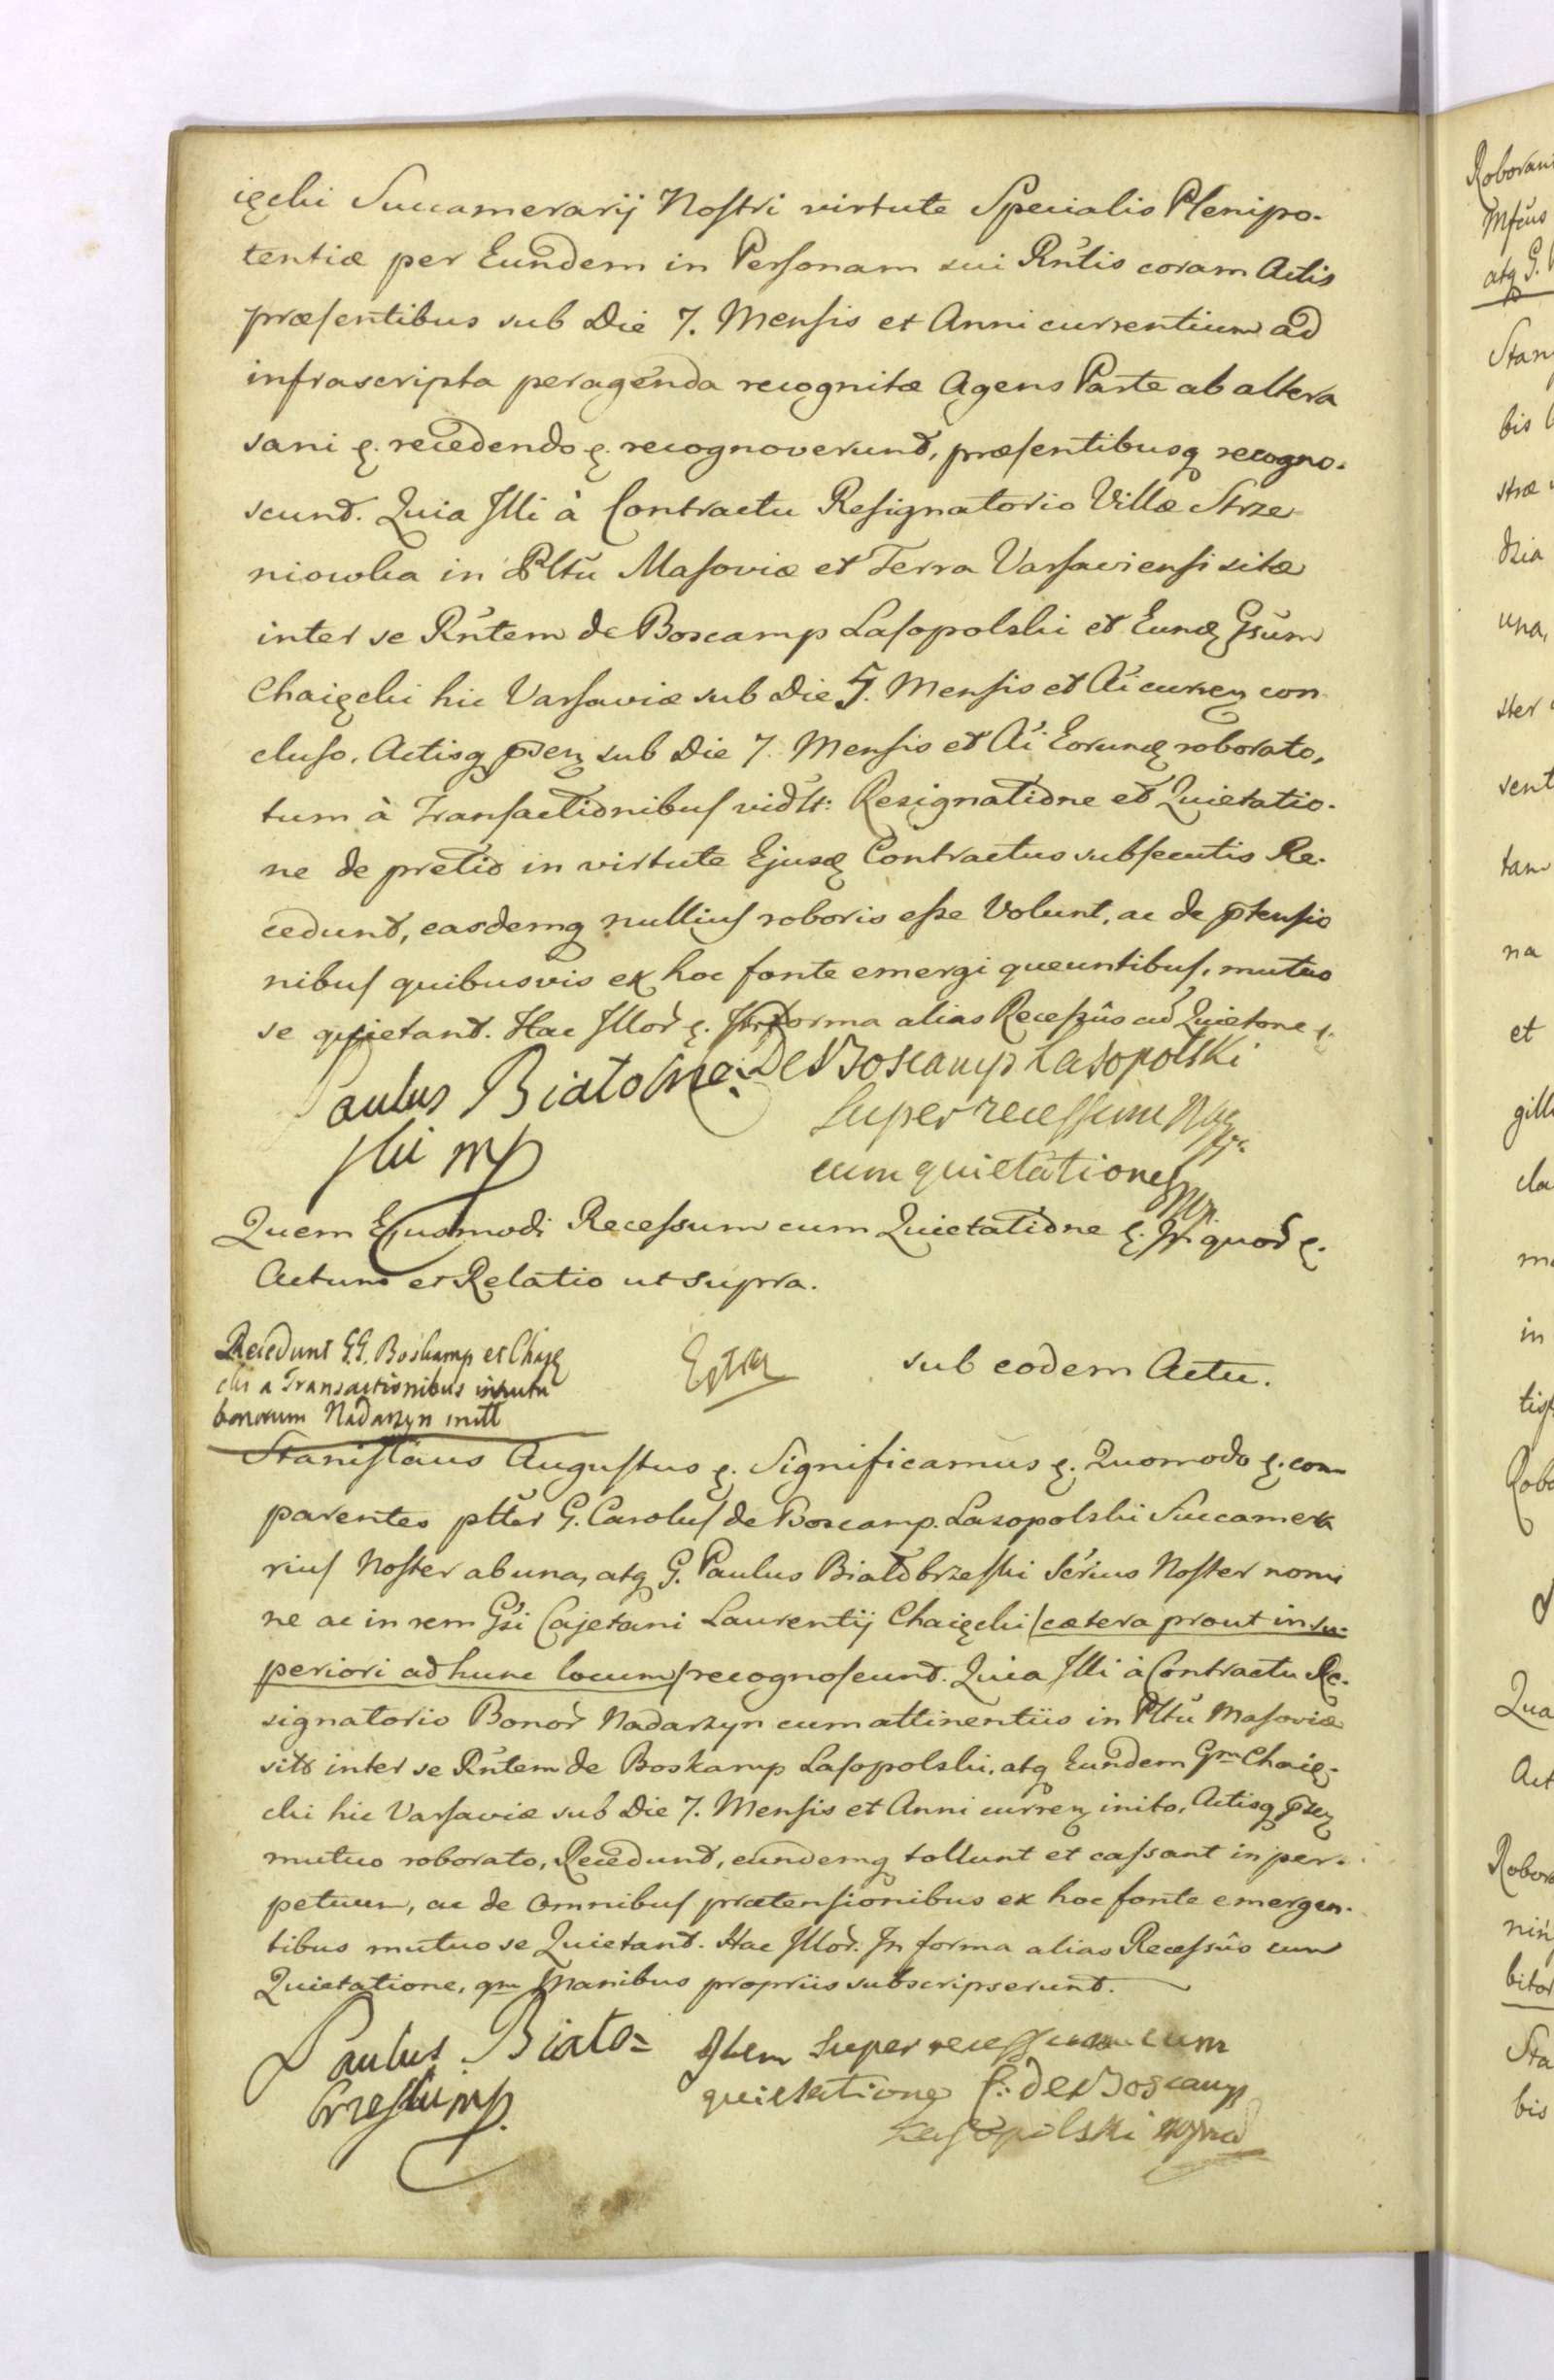 ięcki Succamerarij Nostri virtute Specialis Plenipo-
tentiæ per Eundem in Personam sui Rñtis coram Actis
præsentibus sub Die 7. Mensis et Anni currentium ad
infrascripta peragenda recognitæ Agens Parte ab altera
sani &. recedendo &. recognoverunt, præsentibusq recogno-
scunt. Quia Illi à Contractu Resignatorio Villæ Strze-
niowka in Pltũ Masoviæ et Terra Varsaviensi sitæ
inter se Rñtem de Boscamp Lasopolski et Eunđ Gsum
Chaięcki hic Varsaviæ sub Die 5. Mensis et Ai curren con-
cluso, Actisq psen sub Die 7. Mensis et Ai Eorunđ roborato,
tum à Transactionibus vidlt: Resignatione et Quietatio-
ne de pretio in virtute Ejusđ Contractus subsecutis Re-
cedunt, easdemq nullius roboris esse Volunt, ac de ptensio
nibus quibusvis ex hoc fonte emergi queuntibus, mutuo
se quietant. Hac Illor &. In forma alias Recessûs cu Quietone &.
Paulus Białobrze- De Boscamp Lasopolski
ski mp super recessum
cum quietatione mp
Quem Ejusmodi Recessum cum Quietatione &. In quor &.
Actum et Relatio ut supra.
Recedunt G.G. Boskamp et Chaję
cki a Transactionibus intuitu
bonorum Nadarzyn initt
sub eodem Actu.
Stanislaus Augustus &. Significamus &. Quomodo &. com
parentes plter G. Carolus de Boscamp Lasopolski Succamera
rius Noster ab una, atq G. Paulus Białobrzeski Serius Noster nomi
ne ac in rem Gsi Cajetani Laurentij Chaięcki /cætera prout in su-
periori ad hunc locum/ recognoscunt. Quia Illi à Contractu Re-
signatorio Bonor Nadarzyn cum attinentiis in Pltũ Masoviæ
sitor inter se Rñtem de Boskamp Lasopolski, atq Eundem Gm Chaię-
cki hic Varsaviæ sub Die 7. Mensis et Anni curren inito, Actisq psen
mutuo roborato, Recedunt, eundemq tollunt et cassant in per-
petuum, ac de omnibus prætensionibus ex hoc fonte emergen-
tibus mutuo se Quietant. Hac Illor. In forma alias Recessûs cum
Quietatione, qm Manibus propriis subscripserunt.
Paulus Biało- Item super recessum cum
brzeski mp. quietatione C: de Boscamp
Lasopolski mpria